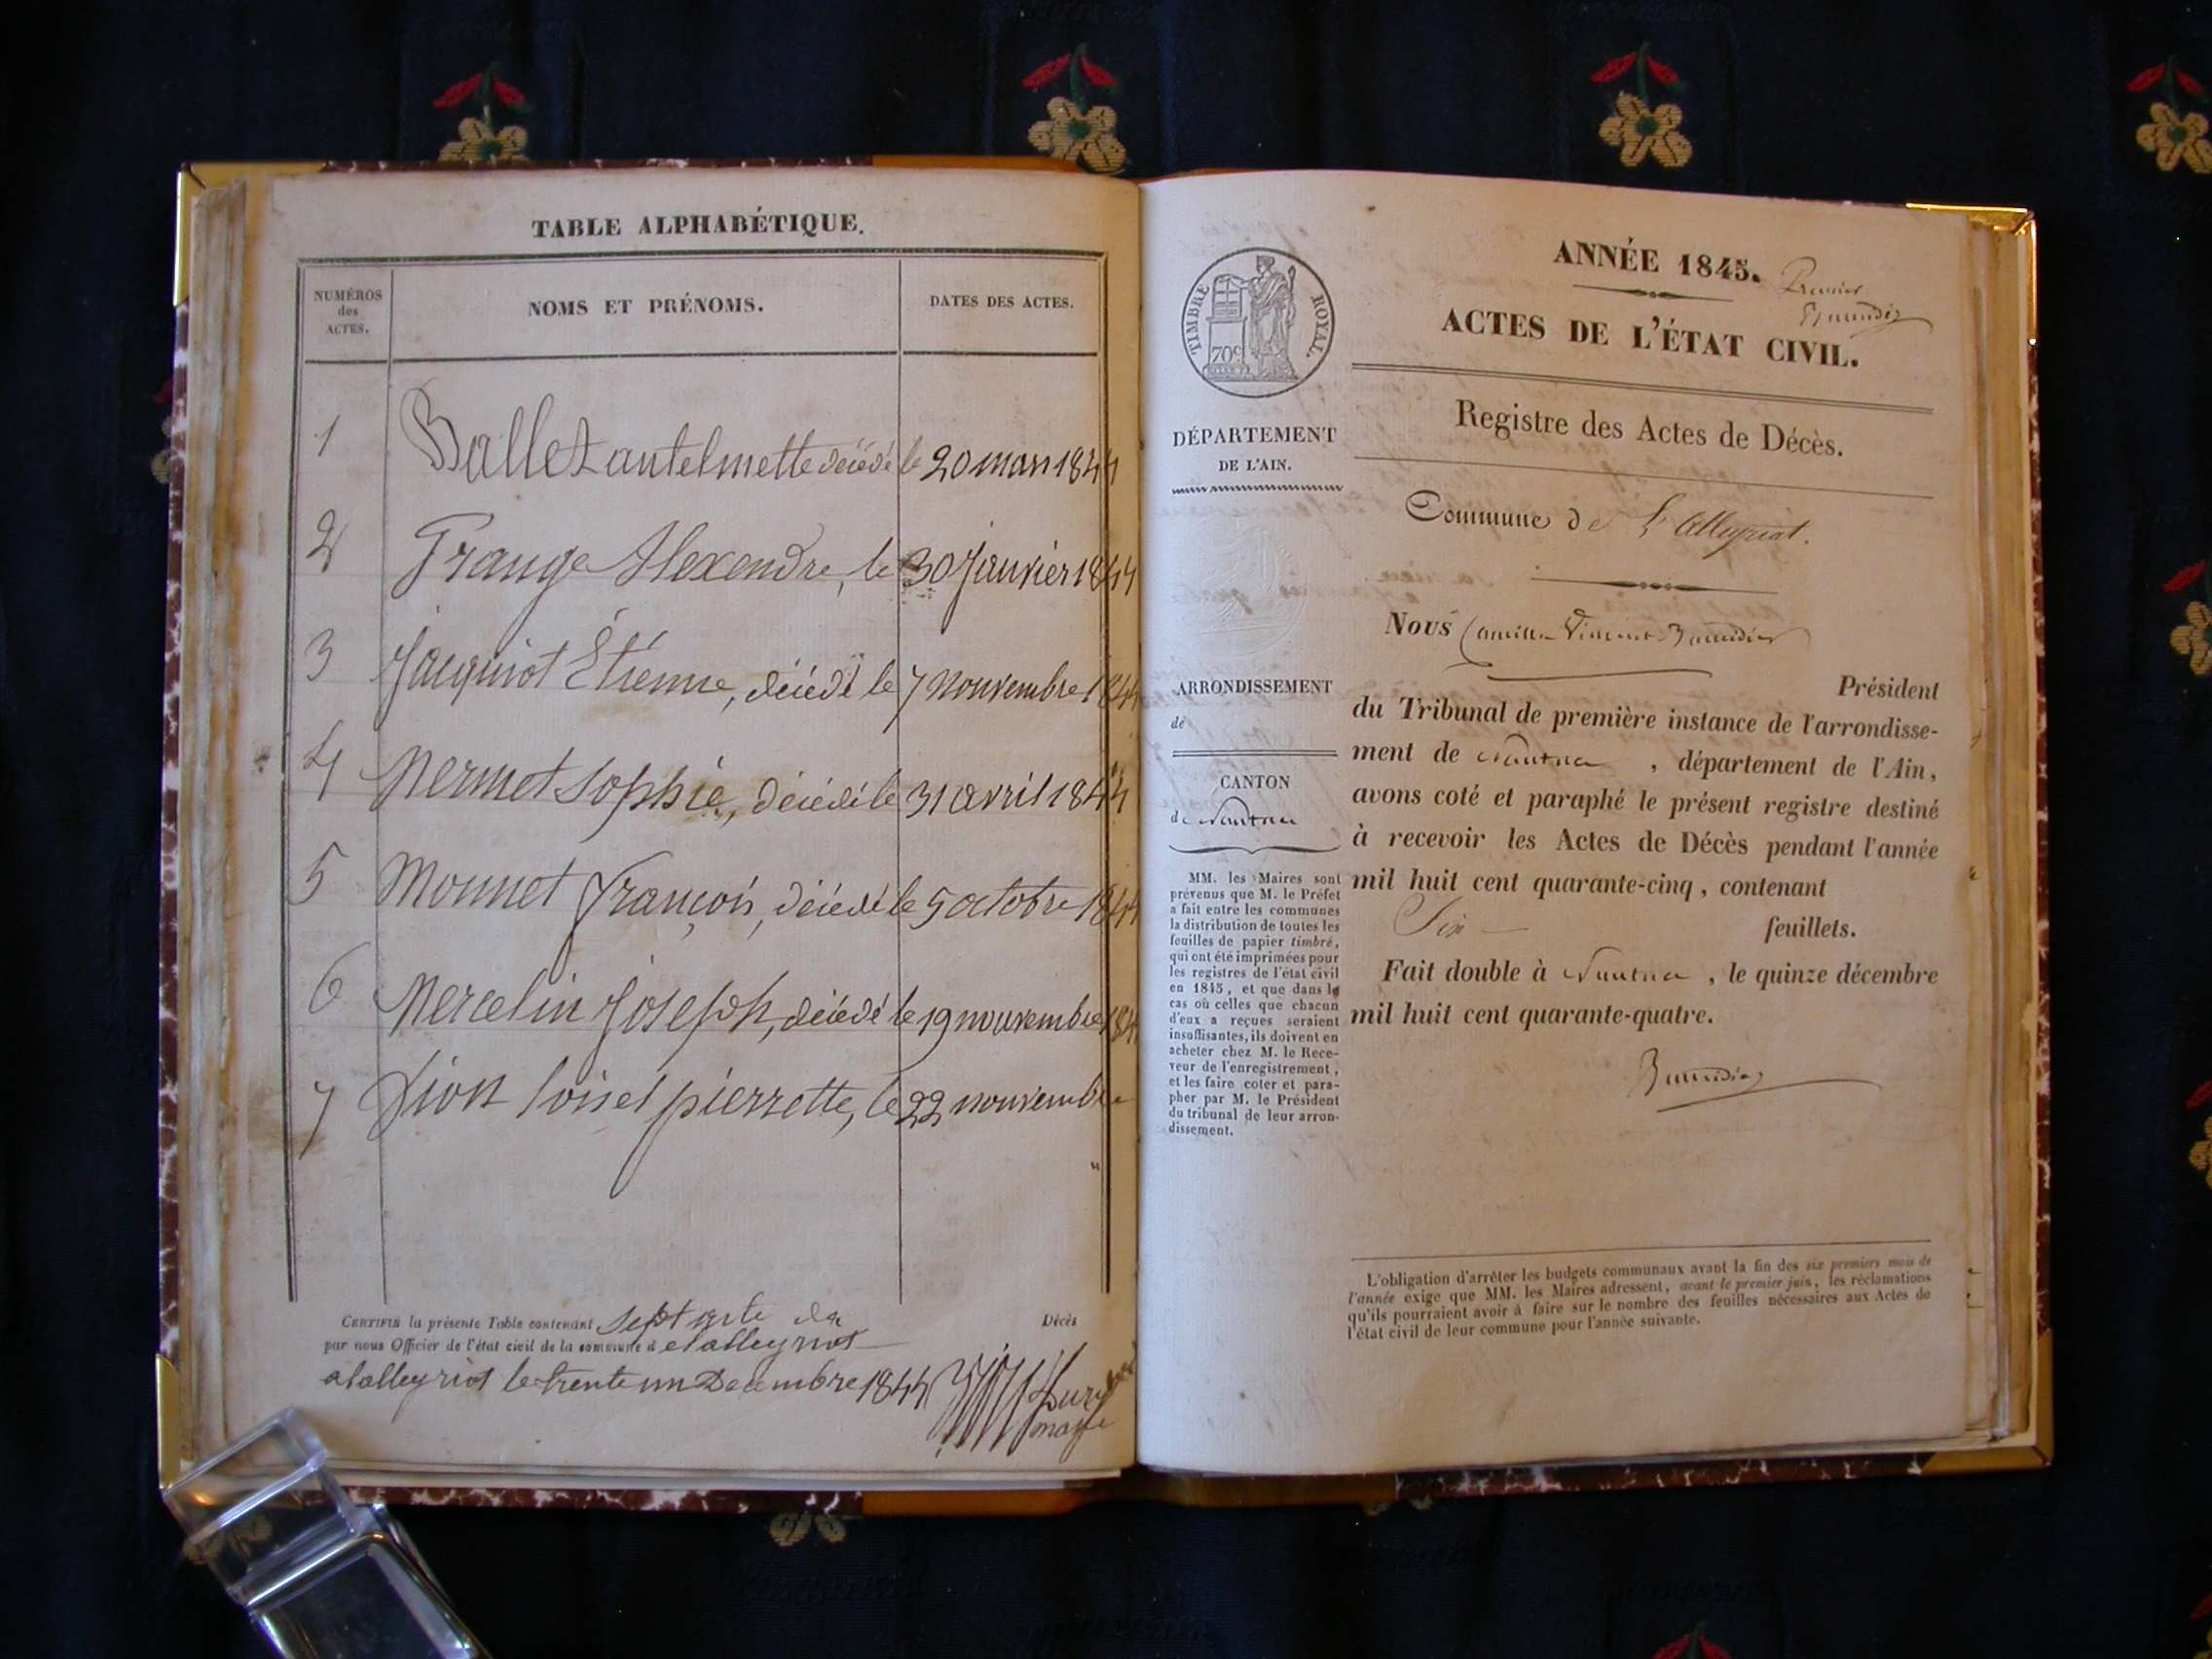 TABLE ALPHABÉTIQUE.
NUMÉROS
des
ACTES.
NOMS ET PRÉNOMS.
DATES DES ACTES.
1 Ballet antelmette décédé le 20 mars 1844
2 Grange Alexendre, le 30 Janvier 1844
3 Jacquiot Étienne, décédé le 7 nouvembre 1844
4 Mermet Sophie, décédé le 31 avril 1844
5 Monnet François, décédé le 5 octobre 1844
6 Mercelin Joseph, décédé le 19 nouvembre 184
7 pierrette, le 22 nouvembre
CERTIFIÉ la présente Table contenant sept acte de Décès
par nous Officier de l'état civil de la commune d elalleyriat
a lalleyriat le trente un Decembre 1844
ANNÉE 1845.
Premier
ACTES DE L'ÉTAT CIVIL.
TIMBRE ROYAL.
70c
Registre des Actes de Décès.
DÉPARTEMENT
DE L'AIN.
Commune de L'alleyriat.
Nous Camille Vincent
ARRONDISSEMENT
de
CANTON
de Nantua
MM. les Maires sont
prévenus que M. le Préfet
a fait entre les communes
la distribution de toutes les
feuilles de papier timbré,
qui ont été imprimées pour
les registres de l'état civil
en 1845, et que dans le
cas où celles que chacun
d'eux a reçues seraient
insuffisantes, ils doivent en
acheter chez M. le Rece-
veur de l'enregistrement,
et les faire coter et para-
pher par M. le Président
du tribunal de leur arron-
dissement.
Président
du Tribunal de première instance de l'arrondisse-
ment de Nantua, département de l'Ain,
avons coté et paraphé le présent registre destiné
à recevoir les Actes de Décès pendant l'année
mil huit cent quarante-cinq, contenant
Six feuillets.
Fait double à Nantua, le quinze décembre
mil huit cent quarante-quatre.
L'obligation d'arrêter les budgets communaux avant la fin des six premiers mois de
l'année exige que MM. les Maires adressent, avant le premier juin, les réclamations
qu'ils pourraient avoir à faire sur le nombre des feuilles nécessaires aux Actes de
l'état civil de leur commune pour l'année suivante.